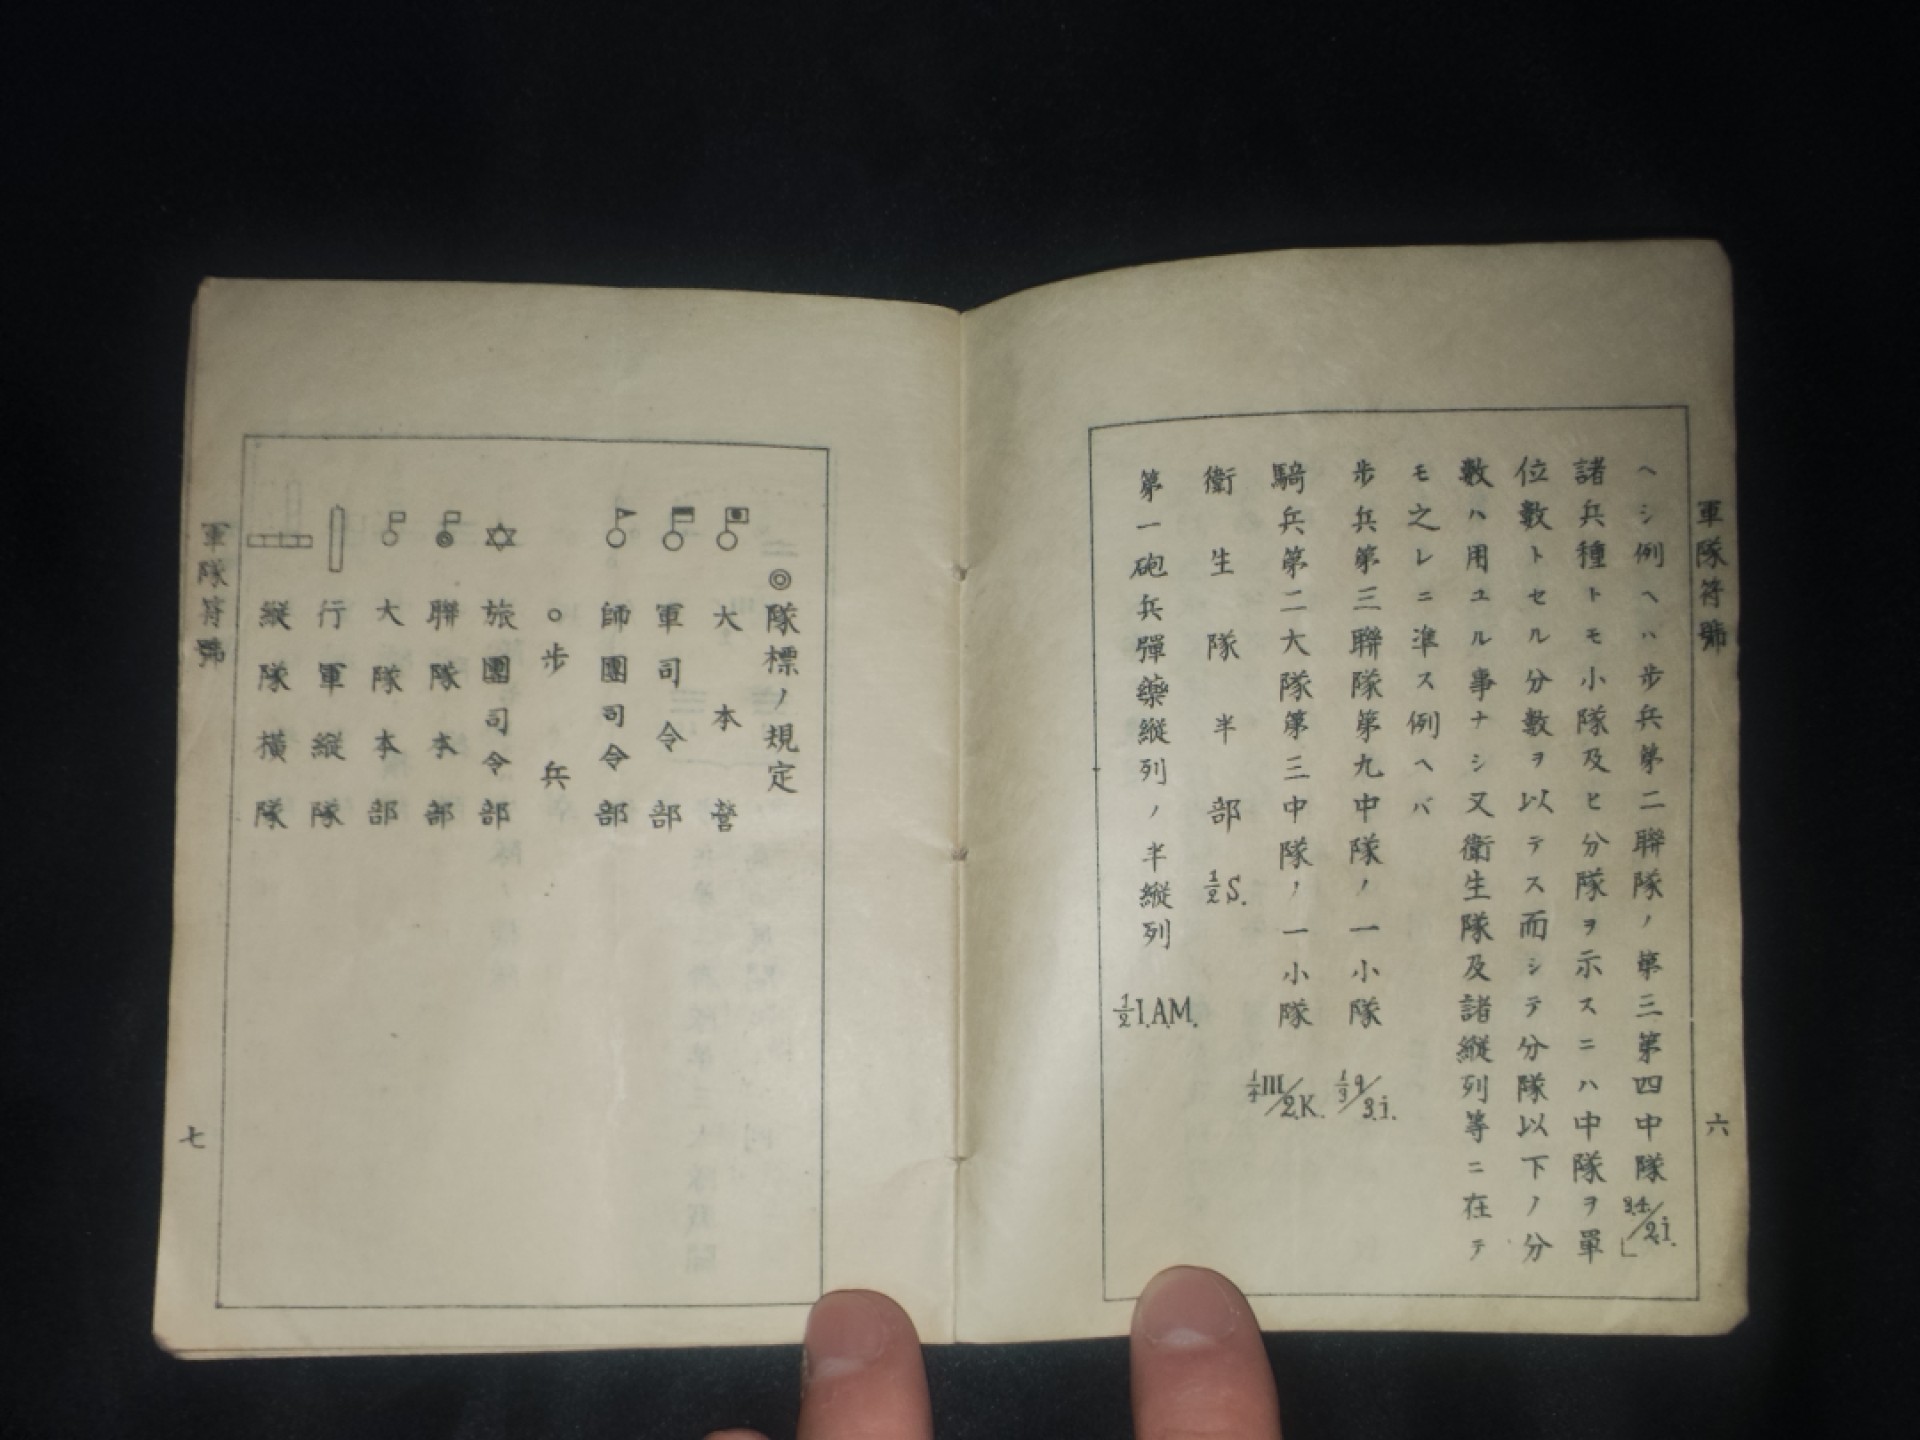 軍隊符號
六
ヘシ例ヘハ步兵第二聯隊ノ第三第四中隊3.4./2.i.」
諸兵種トモ小隊及ヒ分隊ヲ示スニハ中隊ヲ單
位數トセル分數ヲ以テス而シテ分隊以下ノ分
數ハ用ユル事ナシ又衞生隊及諸縱列等ニ在テ
モ之レニ準ス例ヘバ
步兵第三聯隊第九中隊ノ一小隊 1/3 9/3.i.
騎兵第二大隊第三中隊ノ一小隊 1/4 III/2.K.
衞生隊半部 1/2 S.
第一砲兵彈藥縱列ノ半縱列 1/2 I.A.M.
◎隊標ノ規定
大本營
軍司令部
師團司令部
○步兵
旅團司令部
聯隊本部
大隊本部
行軍縱隊
縱隊橫隊
軍隊符號
七